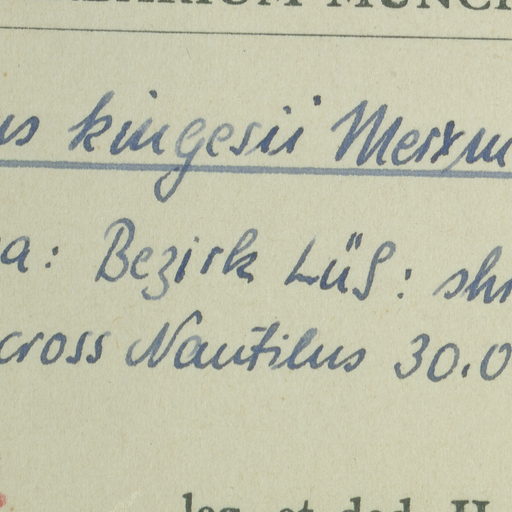 us kingesii Merxm
a: Bezirk Lüß: shr
cross Nautilus 30.0
leg. et ded. H